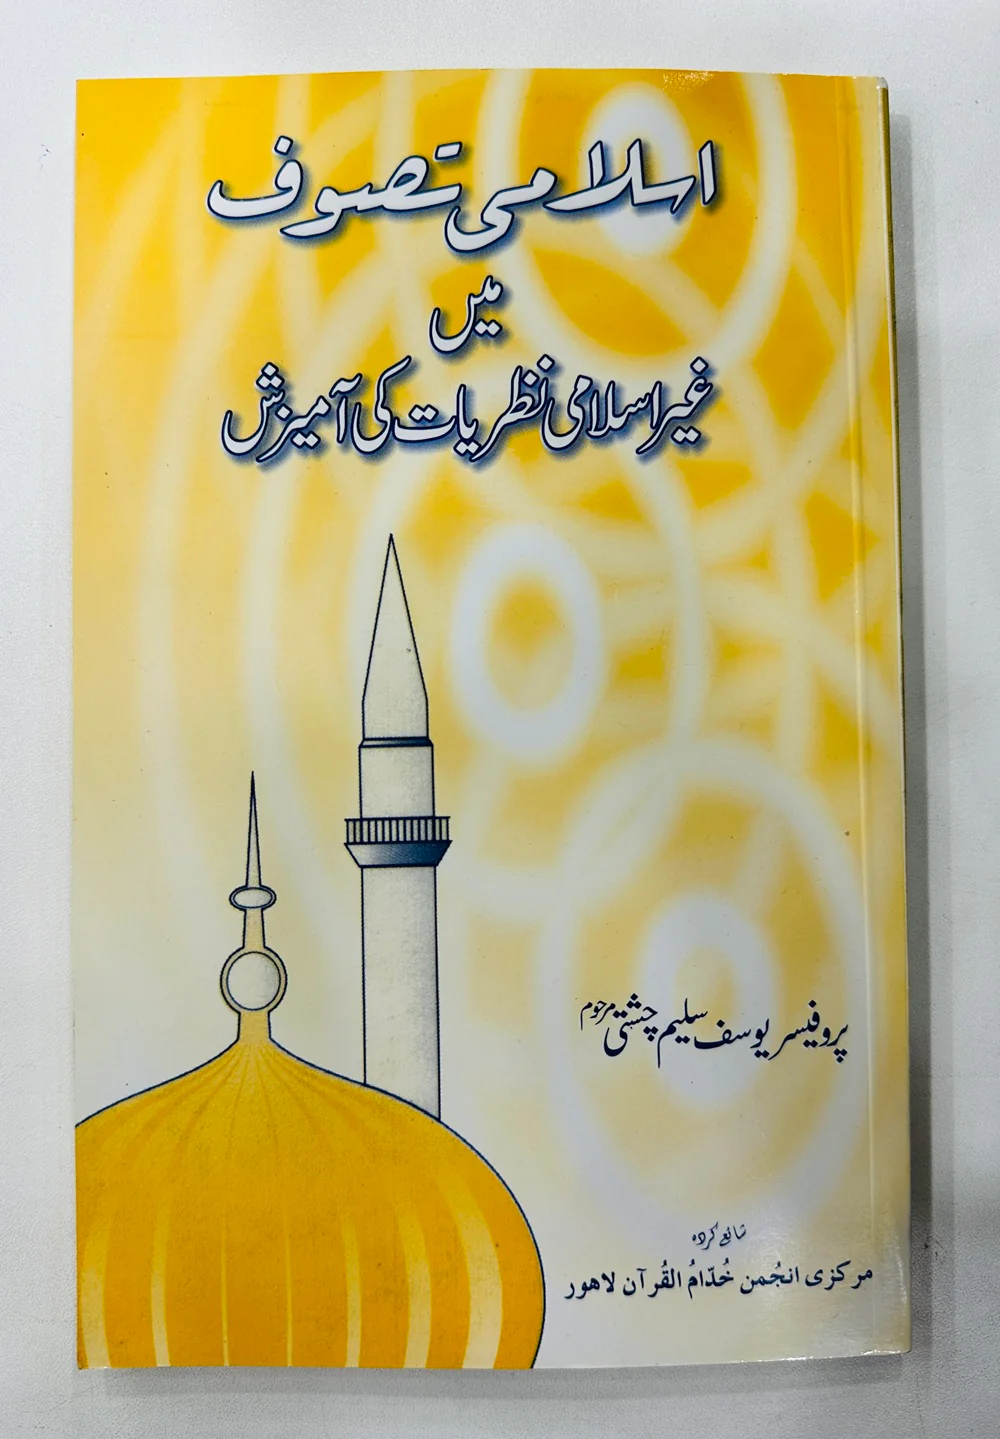 اسلامی تصوف
میں
غیر اسلامی نظریات کی آمیزش
پروفیسر یوسف سلیم چشتی مرحوم
شائع کردہ
مرکزی انجُمن خُدّامُ القُرآن لاہور